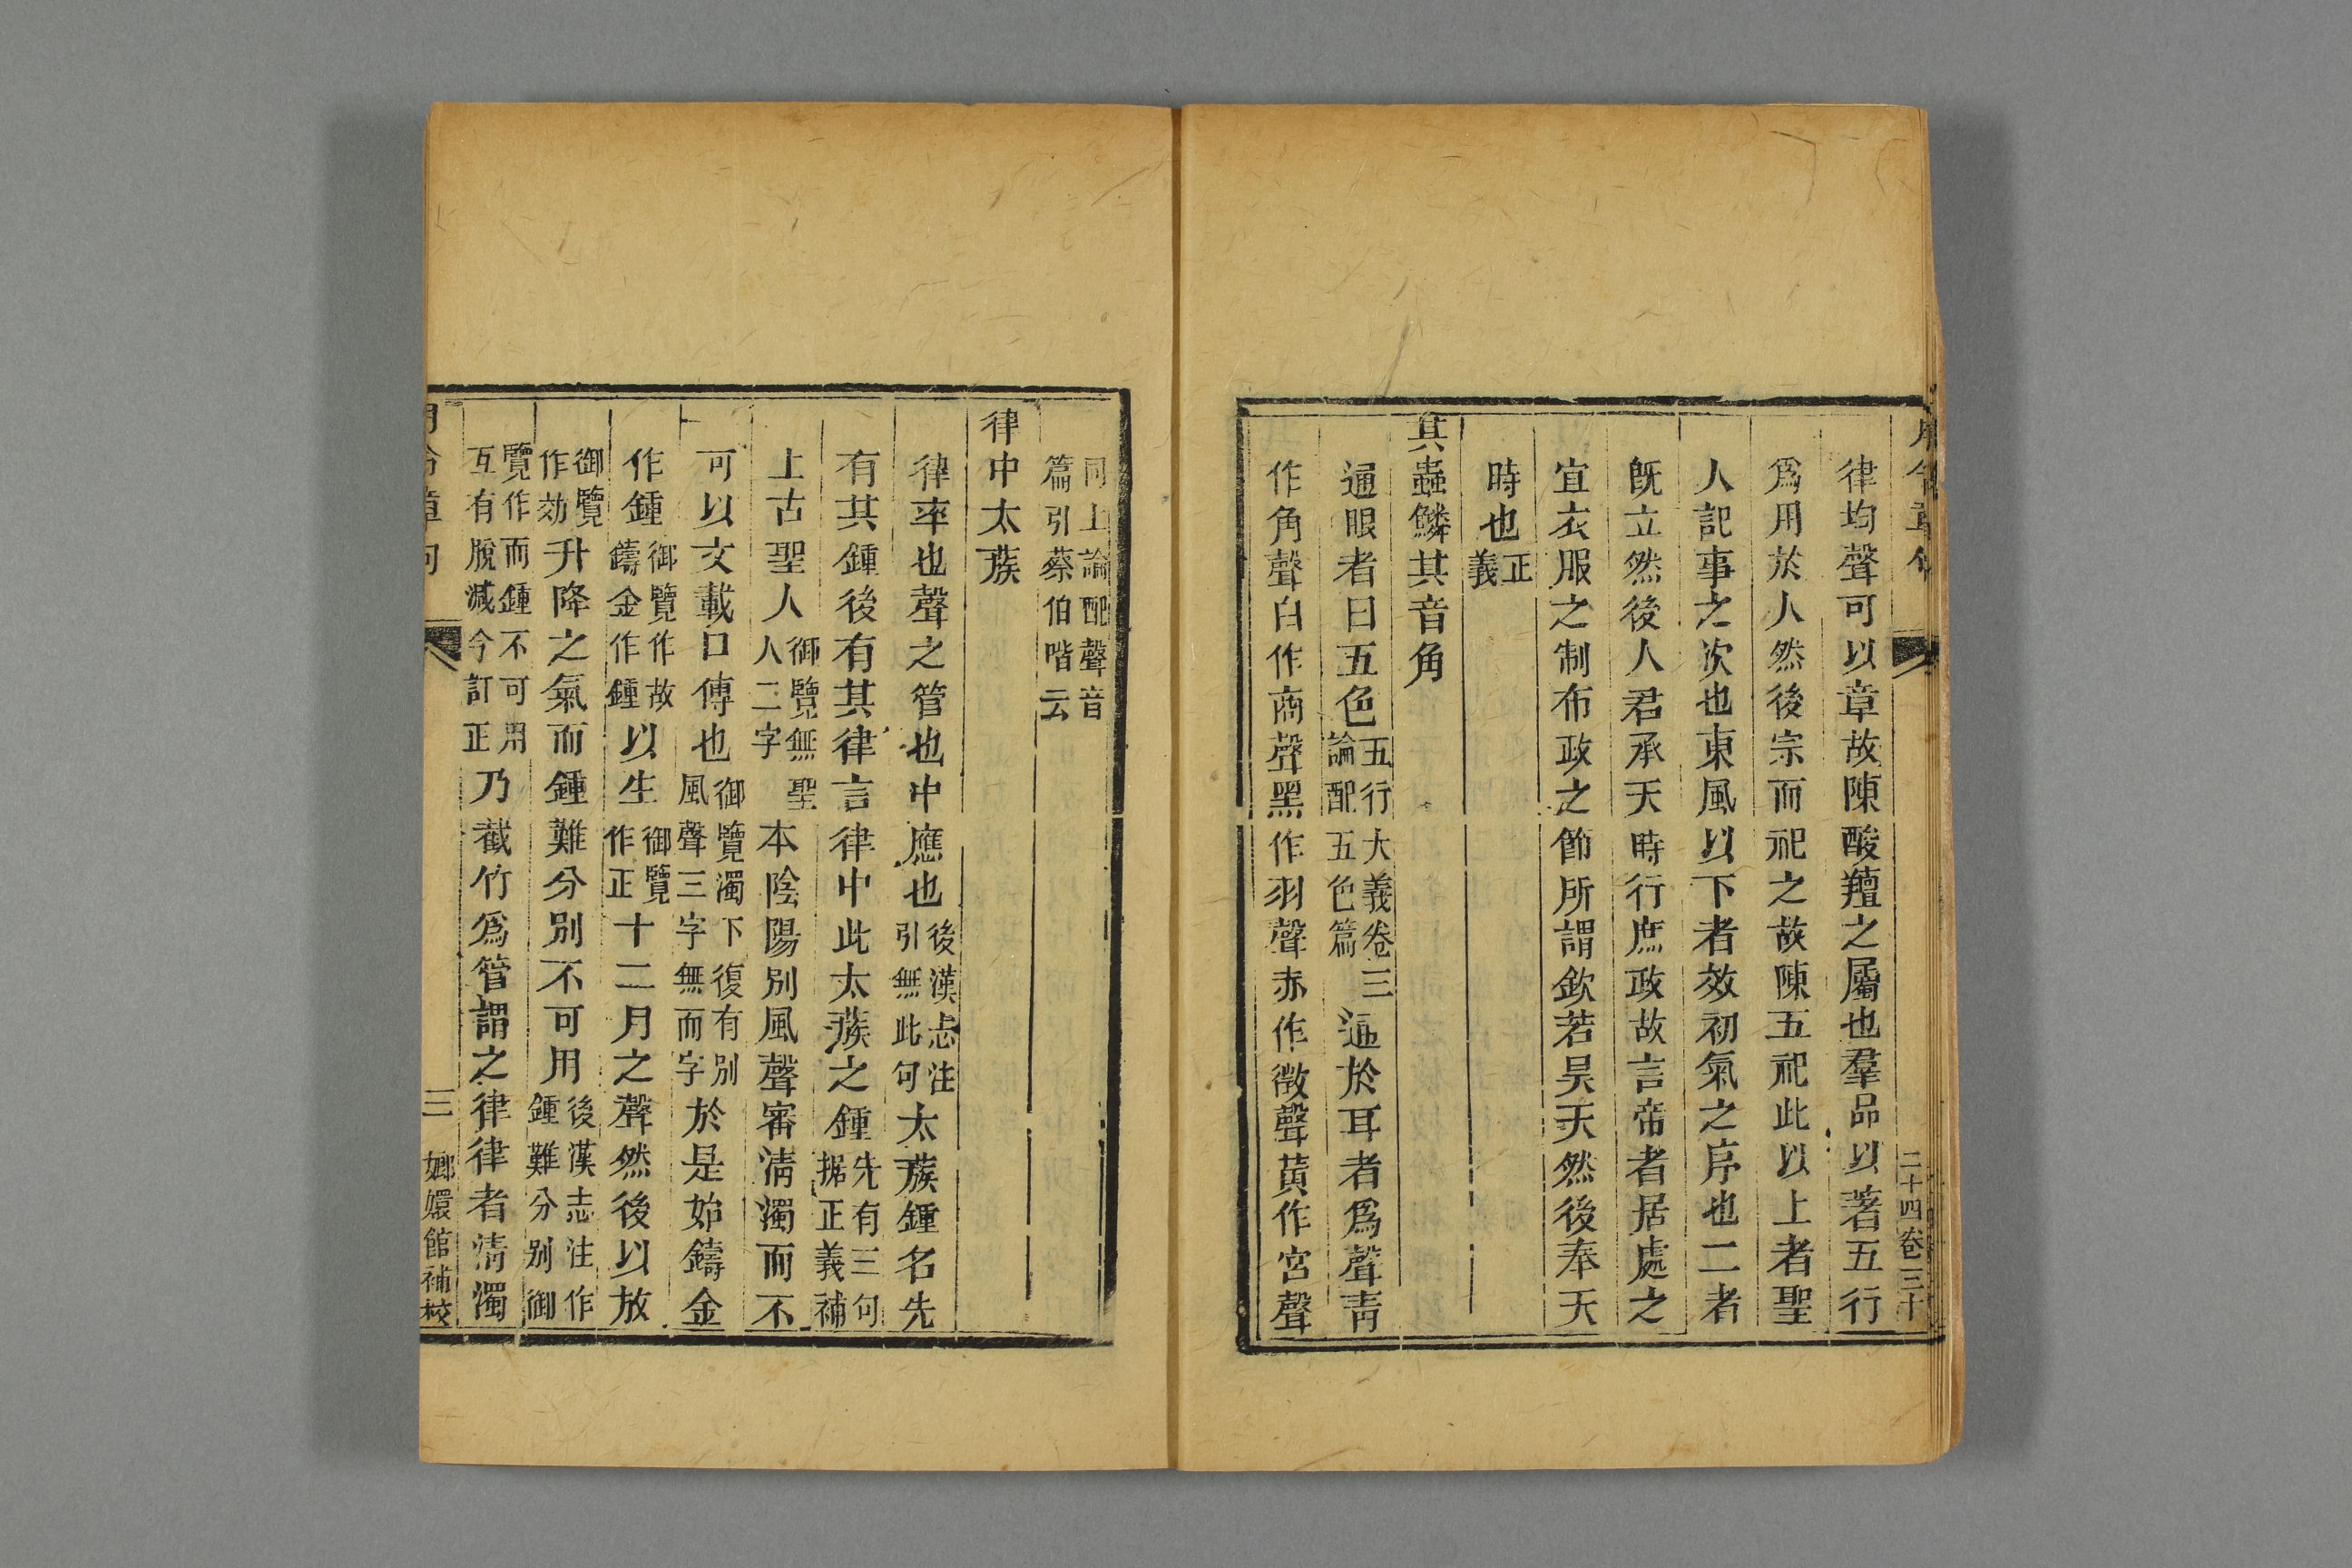 月令章句 二十四卷三十
律均聲可以章故陳酸羶之屬也羣品以著五行
爲用於人然後宗而祀之故陳五祀此以上者聖
人記事之次也東風以下者效初氣之序也二者
旣立然後人君承天時行庶政故言帝者居處之
宜衣服之制布政之節所謂欽若昊天然後奉天
時也正義
其蟲鱗其音角
通眼者曰五色五行大義卷三論配五色篇通於耳者爲聲青
作角聲白作商聲黑作羽聲赤作徵聲黃作宮聲
同上論配聲音篇引蔡伯喈云
律中太蔟
律率也聲之管也中應也後漢志注引無此句太蔟鍾名先
有其鍾後有其律言律中此太蔟之鍾先有三句據正義補
上古聖人御覽無聖人二字本陰陽別風聲審清濁而不
可以文載口傳也御覽濁下復有別風聲三字無而字於是始鑄金
作鍾御覽作故鑄金作鍾以生御覽作正十二月之聲然後以放
御覽作効升降之氣而鍾難分別不可用後漢志注作鍾難分別御
覽作而鍾不可用互有脫減今訂正乃截竹爲管謂之律律者清濁
月令章句 三 嫏嬛館補校